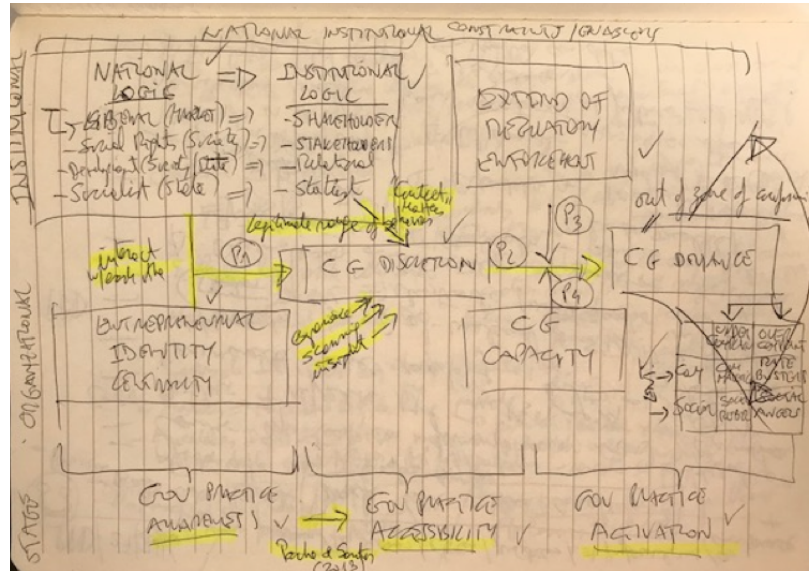 NATIONAL INSTITUTIONAL CONSTRAINTS / ENABLERS
INSTITUTIONAL
NATIONAL LOGIC
=> INSTITUTIONAL LOGIC
- LIBERAL (MARKET) =>
- SHAREHOLDER
- Social Rights (Society) =>
- STAKEHOLDERS
- Development (Society/State) =>
- Relational
- Socialist (State) =>
- Statist
EXTEND OF
REGULATORY
ENFORCEMENT
"Context"
Matters
Legitimate range of
out of zone of
ORGANIZATIONAL
interact
P1
CG DISCRETION
P2
P3
P4
CG DEVIANCE
ENTREPRENEURIAL
IDENTITY
CENTRALITY
experience
scanning
insight
CG
CAPACITY
UNDER
OVER
RATE
BUSTERS
Social
ANGELS
STAGES
GOV PRACTICE
AWARENESS
GOV PRACTICE
ACCESSIBILITY
GOV PRACTICE
ACTIVATION
Pache & Santos
(2013)